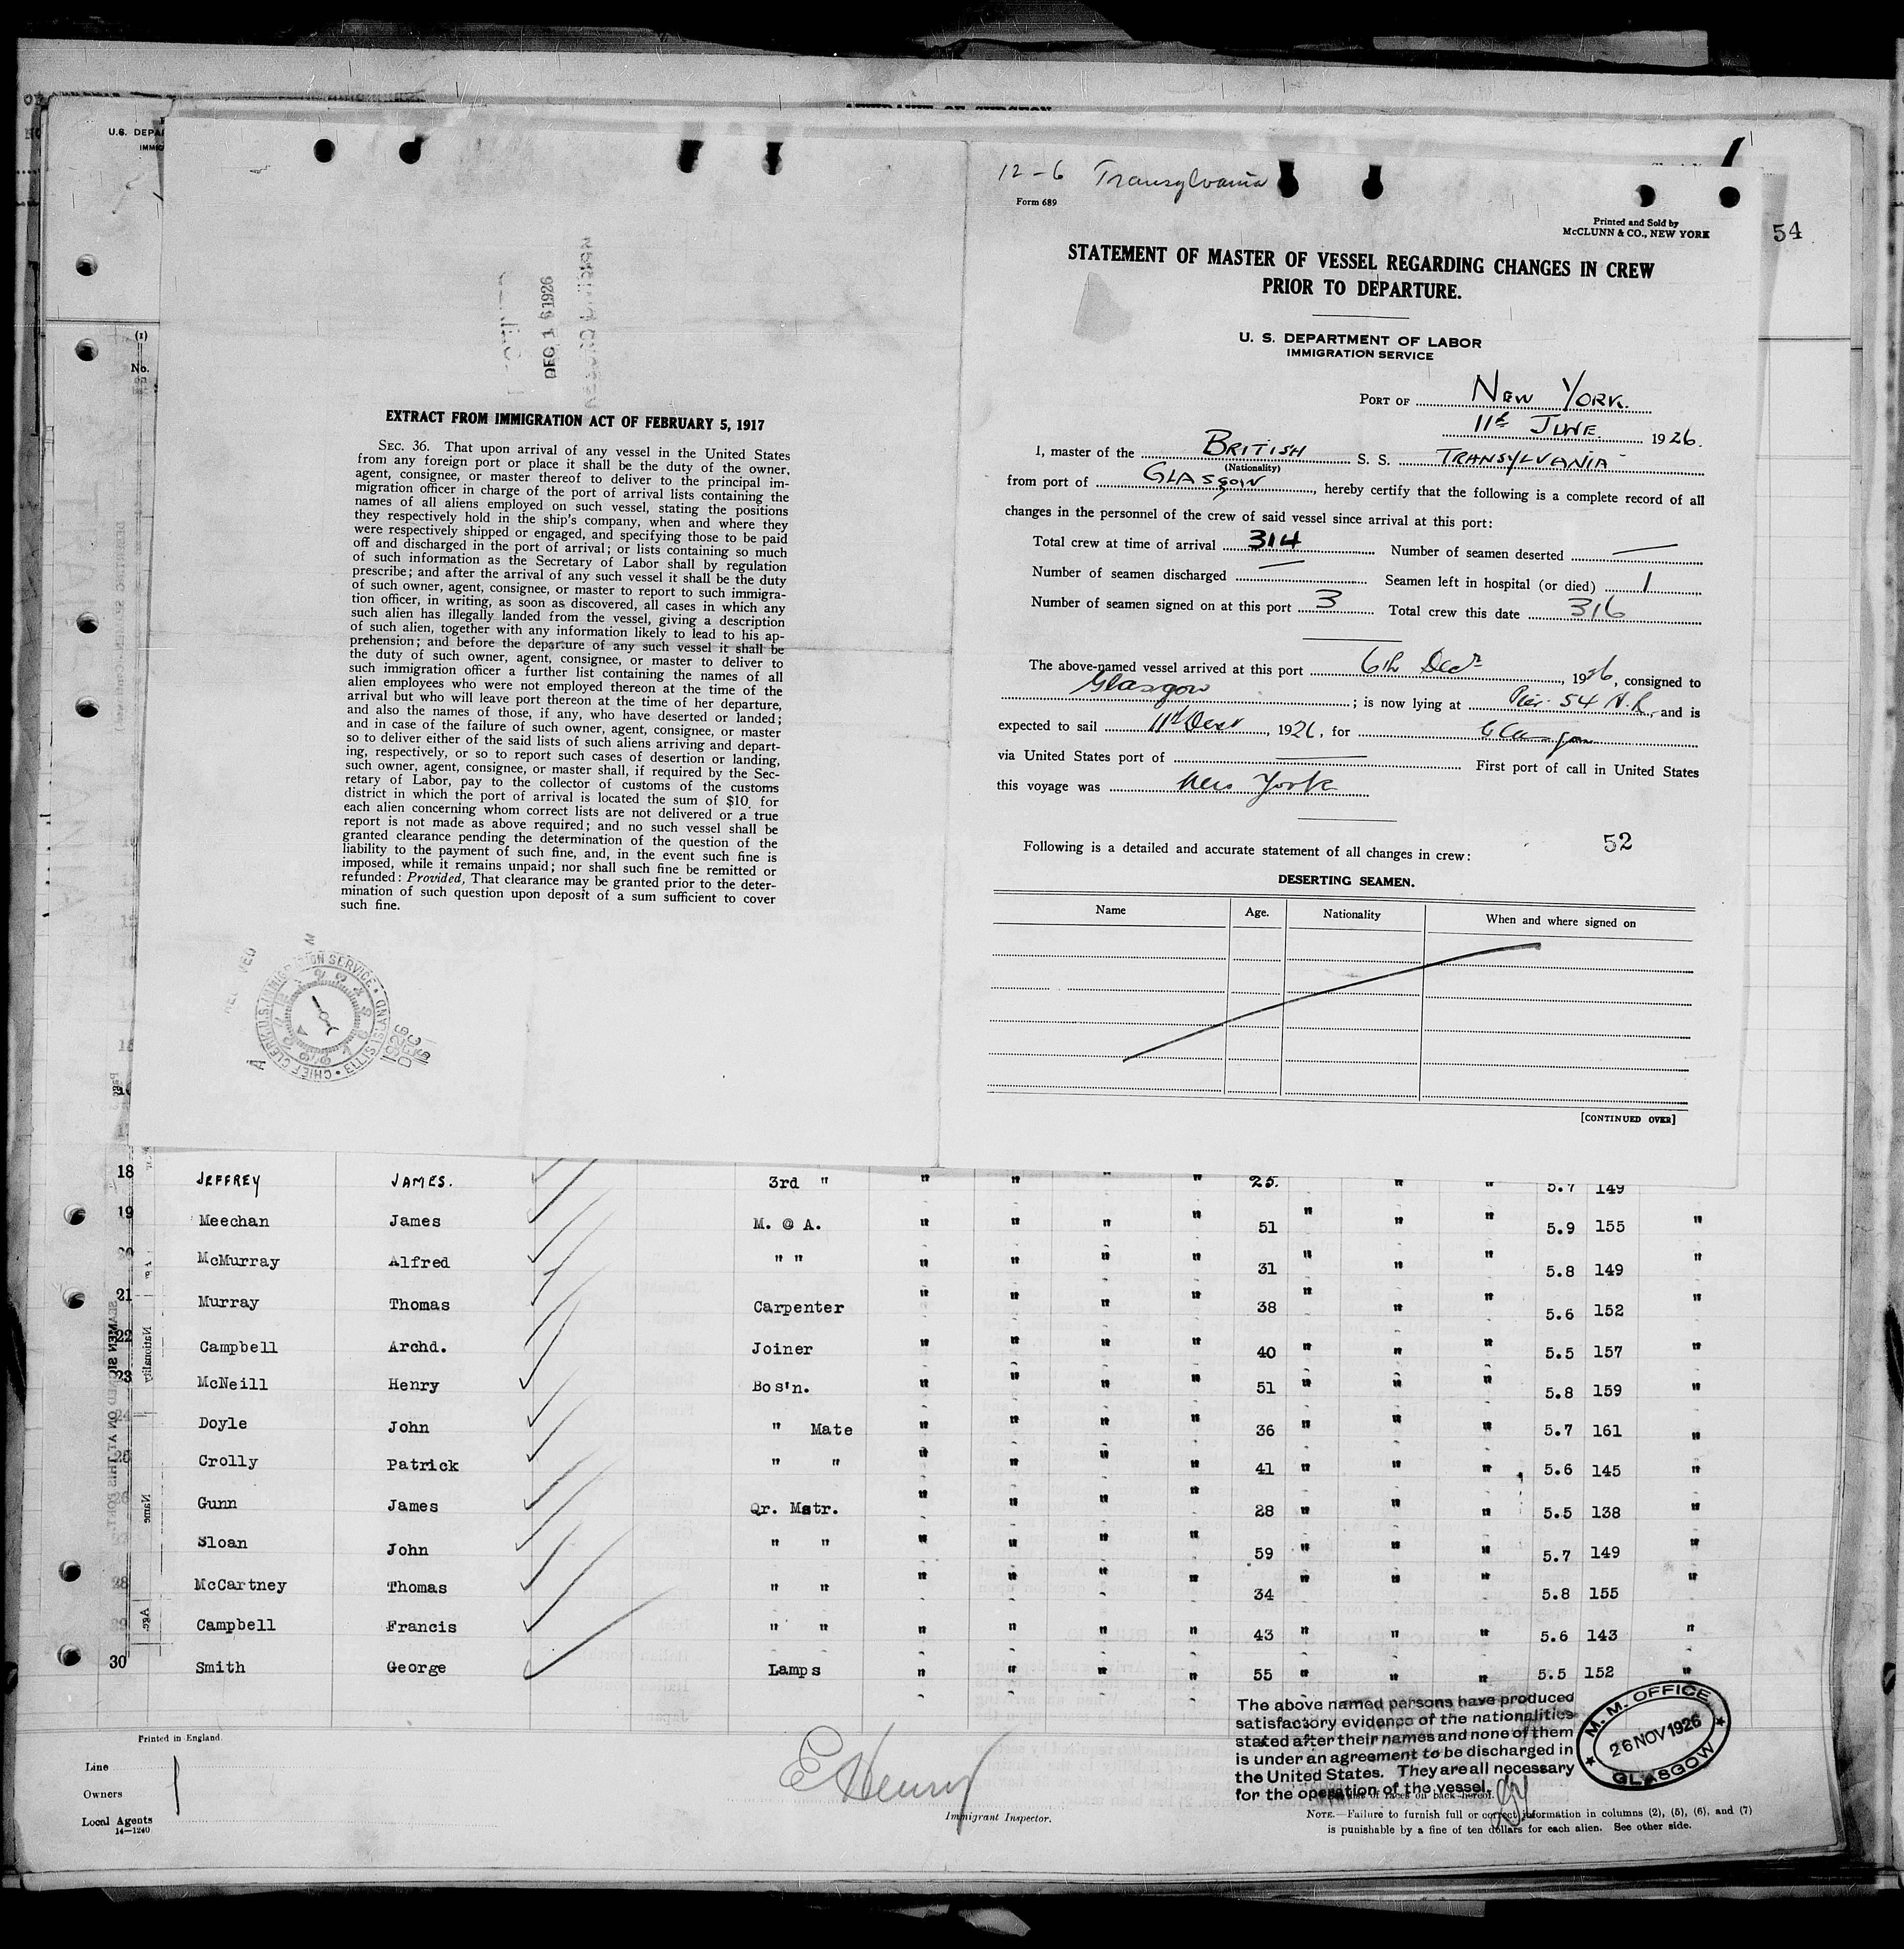 AFFIDAVIT OF SURGEON
U.S. DEPA
IMMIG
(1)
No.
DEC 16 1926
RECORD DIVISION
EXTRACT FROM IMMIGRATION ACT OF FEBRUARY 5, 1917
SEC. 36. That upon arrival of any vessel in the United States
from any foreign port or place it shall be the duty of the owner,
agent, consignee, or master thereof to deliver to the principal im-
migration officer in charge of the port of arrival lists containing the
names of all aliens employed on such vessel, stating the positions
they respectively hold in the ship's company, when and where they
were respectively shipped or engaged, and specifying those to be paid
off and discharged in the port of arrival; or lists containing so much
of such information as the Secretary of Labor shall by regulation
prescribe; and after the arrival of any such vessel it shall be the duty
of such owner, agent, consignee, or master to report to such immigra-
tion officer, in writing, as soon as discovered, all cases in which any
such alien has illegally landed from the vessel, giving a description
of such alien, together with any information likely to lead to his ap-
prehension; and before the departure of any such vessel it shall be
the duty of such owner, agent, consignee, or master to deliver to
such immigration officer a further list containing the names of all
alien employees who were not employed thereon at the time of the
arrival but who will leave port thereon at the time of her departure,
and also the names of those, if any, who have deserted or landed;
and in case of the failure of such owner, agent, consignee, or master
so to deliver either of the said lists of such aliens arriving and depart-
ing, respectively, or so to report such cases of desertion or landing,
such owner, agent, consignee, or master shall, if required by the Sec-
retary of Labor, pay to the collector of customs of the customs
district in which the port of arrival is located the sum of $10 for
each alien concerning whom correct lists are not delivered or a true
report is not made as above required; and no such vessel shall be
granted clearance pending the determination of the question of the
liability to the payment of such fine, and, in the event such fine is
imposed, while it remains unpaid; nor shall such fine be remitted or
refunded: Provided, That clearance may be granted prior to the deter-
mination of such question upon deposit of a sum sufficient to cover
such fine.
CHIEF CLERK U.S. IMMIGRATION SERVICE • ELLIS ISLAND •
1926 DEC 15
12-6 Transylvania
Form 689
Printed and Sold by
McCLUNN & CO., NEW YORK
54
STATEMENT OF MASTER OF VESSEL REGARDING CHANGES IN CREW
PRIOR TO DEPARTURE.
U. S. DEPARTMENT OF LABOR
IMMIGRATION SERVICE
PORT OF NEW YORK.
11th JUNE. 1926.
I, master of the BRITISH S. S. TRANSYLVANIA
(Nationality)
from port of GLASGOW, hereby certify that the following is a complete record of all
changes in the personnel of the crew of said vessel since arrival at this port:
Total crew at time of arrival 314 Number of seamen deserted —
Number of seamen discharged — Seamen left in hospital (or died) 1
Number of seamen signed on at this port 3 Total crew this date 316
The above-named vessel arrived at this port 6th Decr 1926, consigned to
Glasgow; is now lying at Pier 54 N.R. and is
expected to sail 11th Decr, 1926, for Glasgow
via United States port of — First port of call in United States
this voyage was New York
52
Following is a detailed and accurate statement of all changes in crew:
DESERTING SEAMEN.
Name Age. Nationality When and where signed on
[CONTINUED OVER]
18 JEFFREY JAMES. 3rd " " " " " 25. " " 5.7 149
19 Meechan James M. @ A. " " " " 51 " " " 5.9 155 "
20 McMurray Alfred " " " " " " 31 " " " 5.8 149 "
21 Murray Thomas Carpenter " " " " 38 " " " 5.6 152 "
22 Campbell Archd. Joiner " " " " 40 " " " 5.5 157 "
23 McNeill Henry Bos'n. " " " " 51 " " " 5.8 159 "
24 Doyle John " Mate " " " " 36 " " " 5.7 161 "
25 Crolly Patrick " " " " " " 41 " " " 5.6 145 "
26 Gunn James Qr. Mstr. " " " " 28 " " " 5.5 138 "
Sloan John " " " " " " 59 " " " 5.7 149 "
28 McCartney Thomas " " " " " " 34 " " " 5.8 155 "
29 Campbell Francis " " " " " " 43 " " " 5.6 143 "
30 Smith George Lamps " " " " 55 " " " 5.5 152 "
Nationality
Name
Age
SEAMEN SIGNED ON AT THIS PORT.
The above named persons have produced
satisfactory evidence of the nationalities
stated after their names and none of them
is under an agreement to be discharged in
the United States. They are all necessary
for the operation of the vessel.
M. M. OFFICE
26 NOV 1926
GLASGOW
Printed in England.
Line
Owners
Local Agents
14—1240
E Henry
Immigrant Inspector.
of races on back hereof.
NOTE.—Failure to furnish full or correct information in columns (2), (5), (6), and (7)
is punishable by a fine of ten dollars for each alien. See other side.